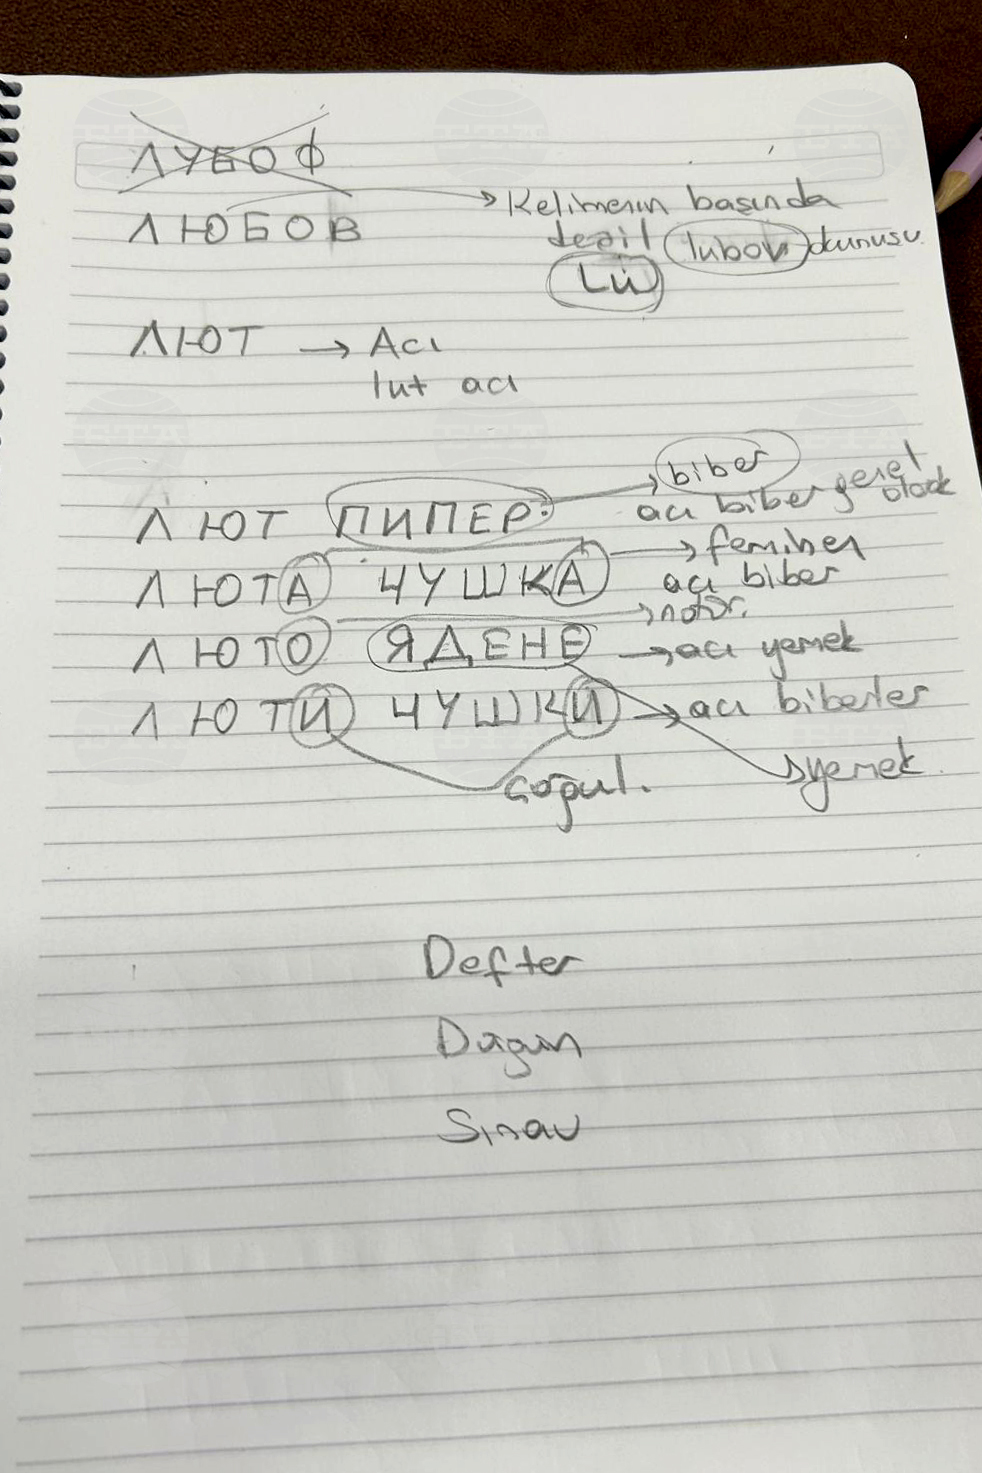 ЛУБОФ
ЛЮБОВ → Kelimenin başında
değil lubov okunuşu.
Lü
ЛЮТ → Acı
lut acı
biber
ЛЮТ ПИПЕР. acı biber genel olarak
ЛЮТА ЧУШКА → feminen
acı biber
→ nötr.
ЛЮТО ЯДЕНЕ → acı yemek
ЛЮТИ ЧУШКИ → acı biberler
çoğul. yemek
Defter
Düğün
Sınav